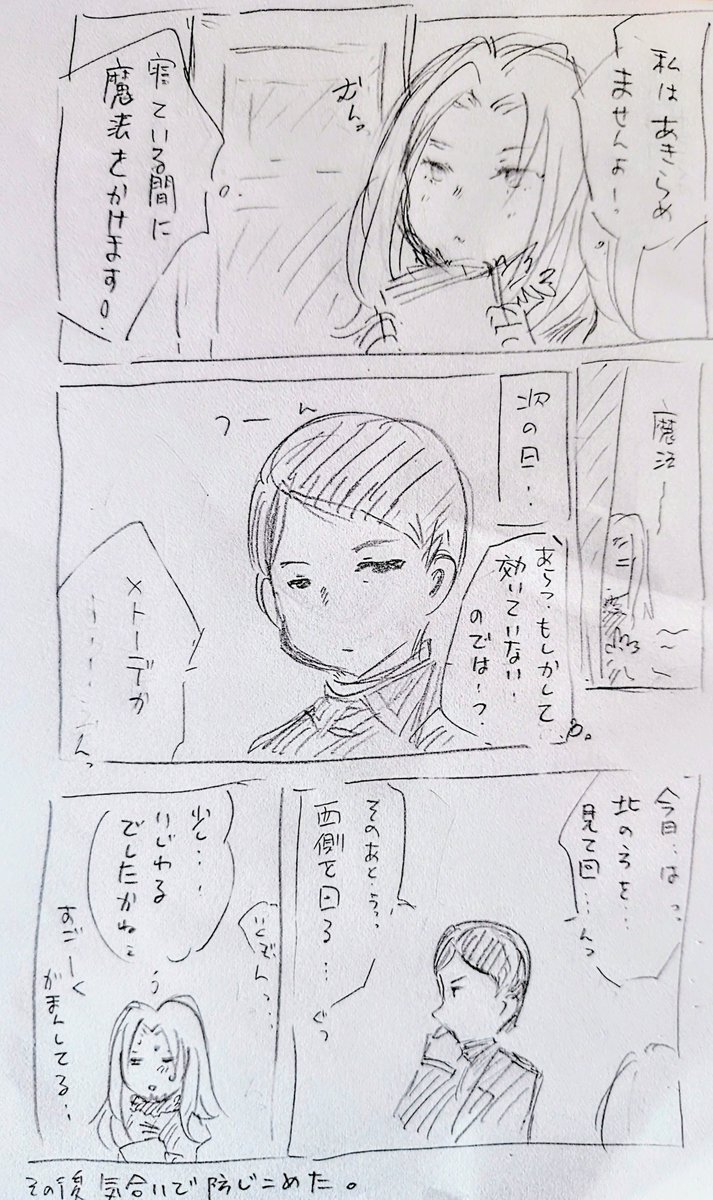 私はあきらめ
ませんよー。
むんっ
寝ている間に
魔法をかけます。
魔法〜〜
次の日…
あらっ、もしかして…
効いていない
のでは…っ
つーん
メトーデが
んっ
今日…はっ、
北のろを…
見て回…んっ
そのあと…うっ
西側を回る…
ぐっ
少し…
いじわる
でしたかねぇ
すごーく
がまんしてる…
その後気合いで防じこめた。